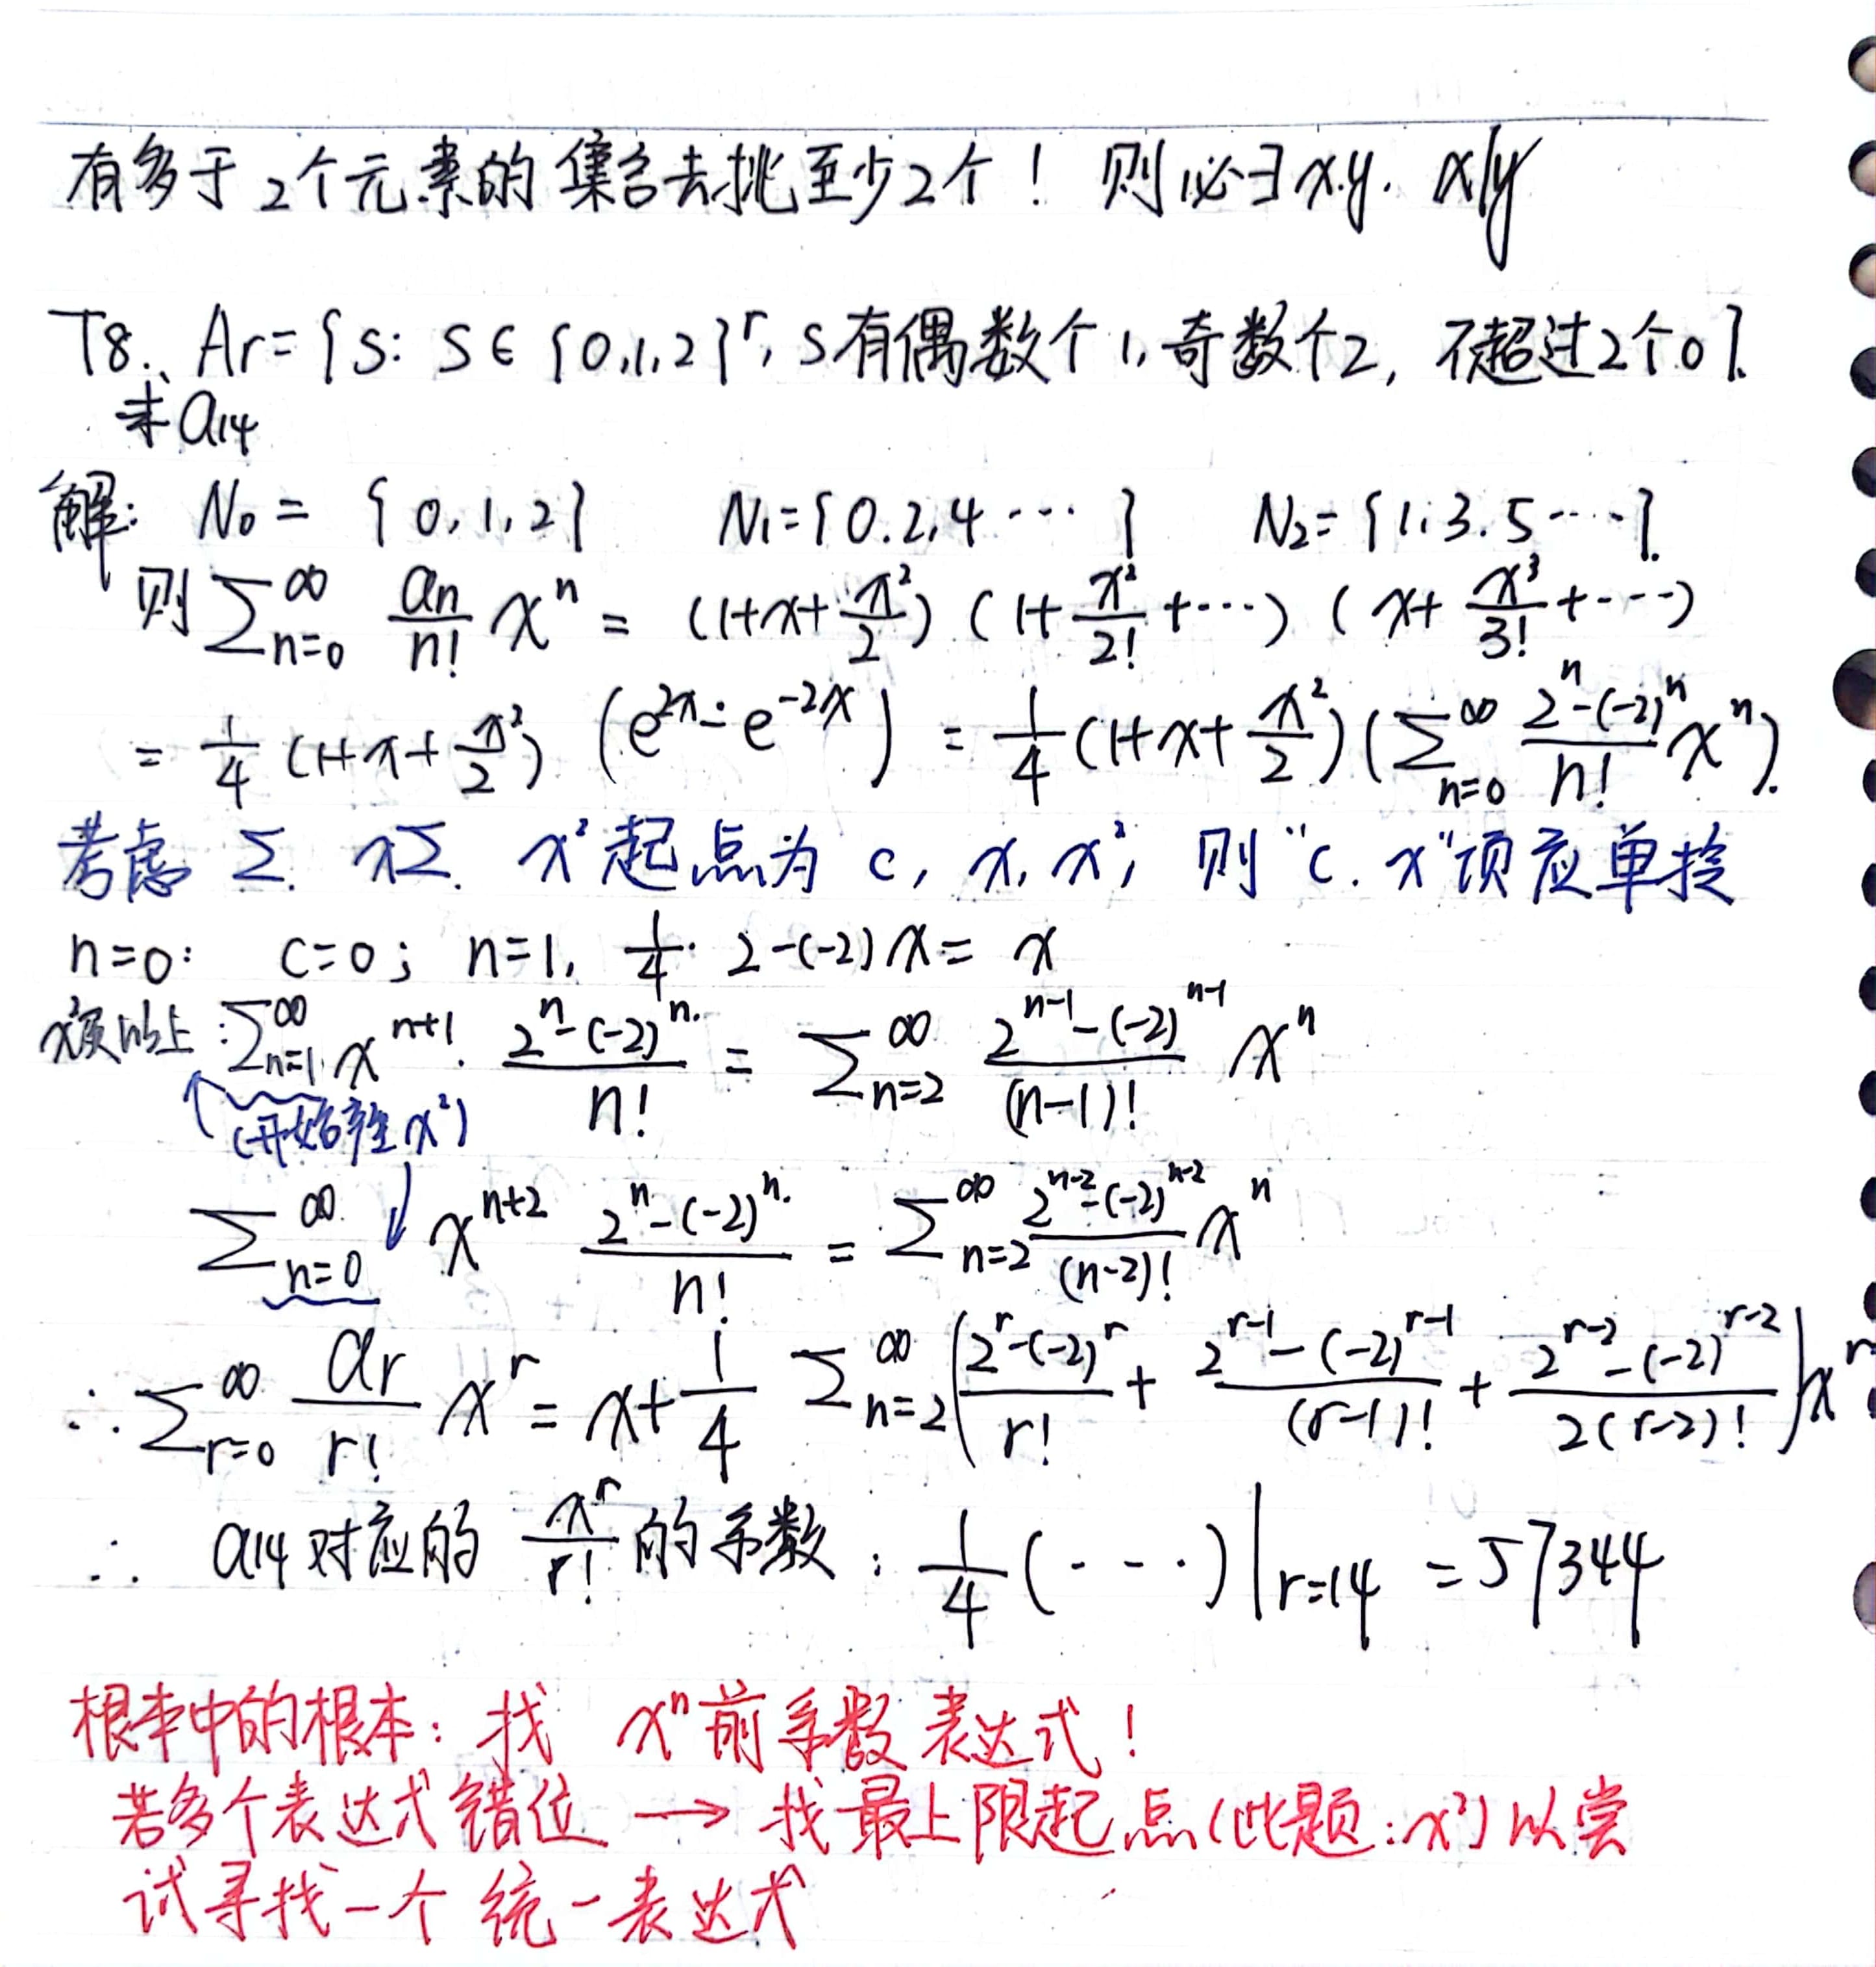 有多于2个元素的集合去挑至少2个！则必∃x,y. x|y
T8. Ar={S: S∈{0,1,2}^r, S有偶数个1,奇数个2, 不超过2个0}.
求a14
解: N₀={0,1,2} N₁={0.2,4…} N₂={1,3.5…}.
则 ∑_{n=0}^∞ an/n! x^n = (1+x+x²/2)(1+x²/2!+…)(x+x³/3!+…)
= 1/4 (1+x+x²/2)(e^{2x}-e^{-2x}) = 1/4(1+x+x²/2)(∑_{n=0}^∞ (2^n-(-2)^n)/n! x^n).
考虑 ∑. x∑. x² 起点为 c, x, x², 则"c. x"项应单拎
n=0: c=0; n=1, 1/4·2-(-2)x = x
x²项以上: ∑_{n=1}^∞ x^{n+1}·(2^n-(-2)^n)/n! = ∑_{n=2}^∞ (2^{n-1}-(-2)^{n-1})/(n-1)! x^n
(开始产生x²)
∑_{n=0}^∞ x^{n+2} (2^n-(-2)^n)/n! = ∑_{n=2}^∞ (2^{n-2}-(-2)^{n-2})/(n-2)! x^n
∴ ∑_{r=0}^∞ ar/r! x^r = x+1/4 ∑_{n=2}^∞ ((2^r-(-2)^r)/r! + (2^{r-1}-(-2)^{r-1})/(r-1)! + (2^{r-2}-(-2)^{r-2})/2(r-2)!)x^r
∴ a14对应的 x^r/r! 的系数: 1/4(----)|_{r=14} = 57344
根本中的根本: 找 x^n前系数表达式!
若多个表达式错位 → 找最上限起点(此题:x²)以尝
试寻找一个统一表达式